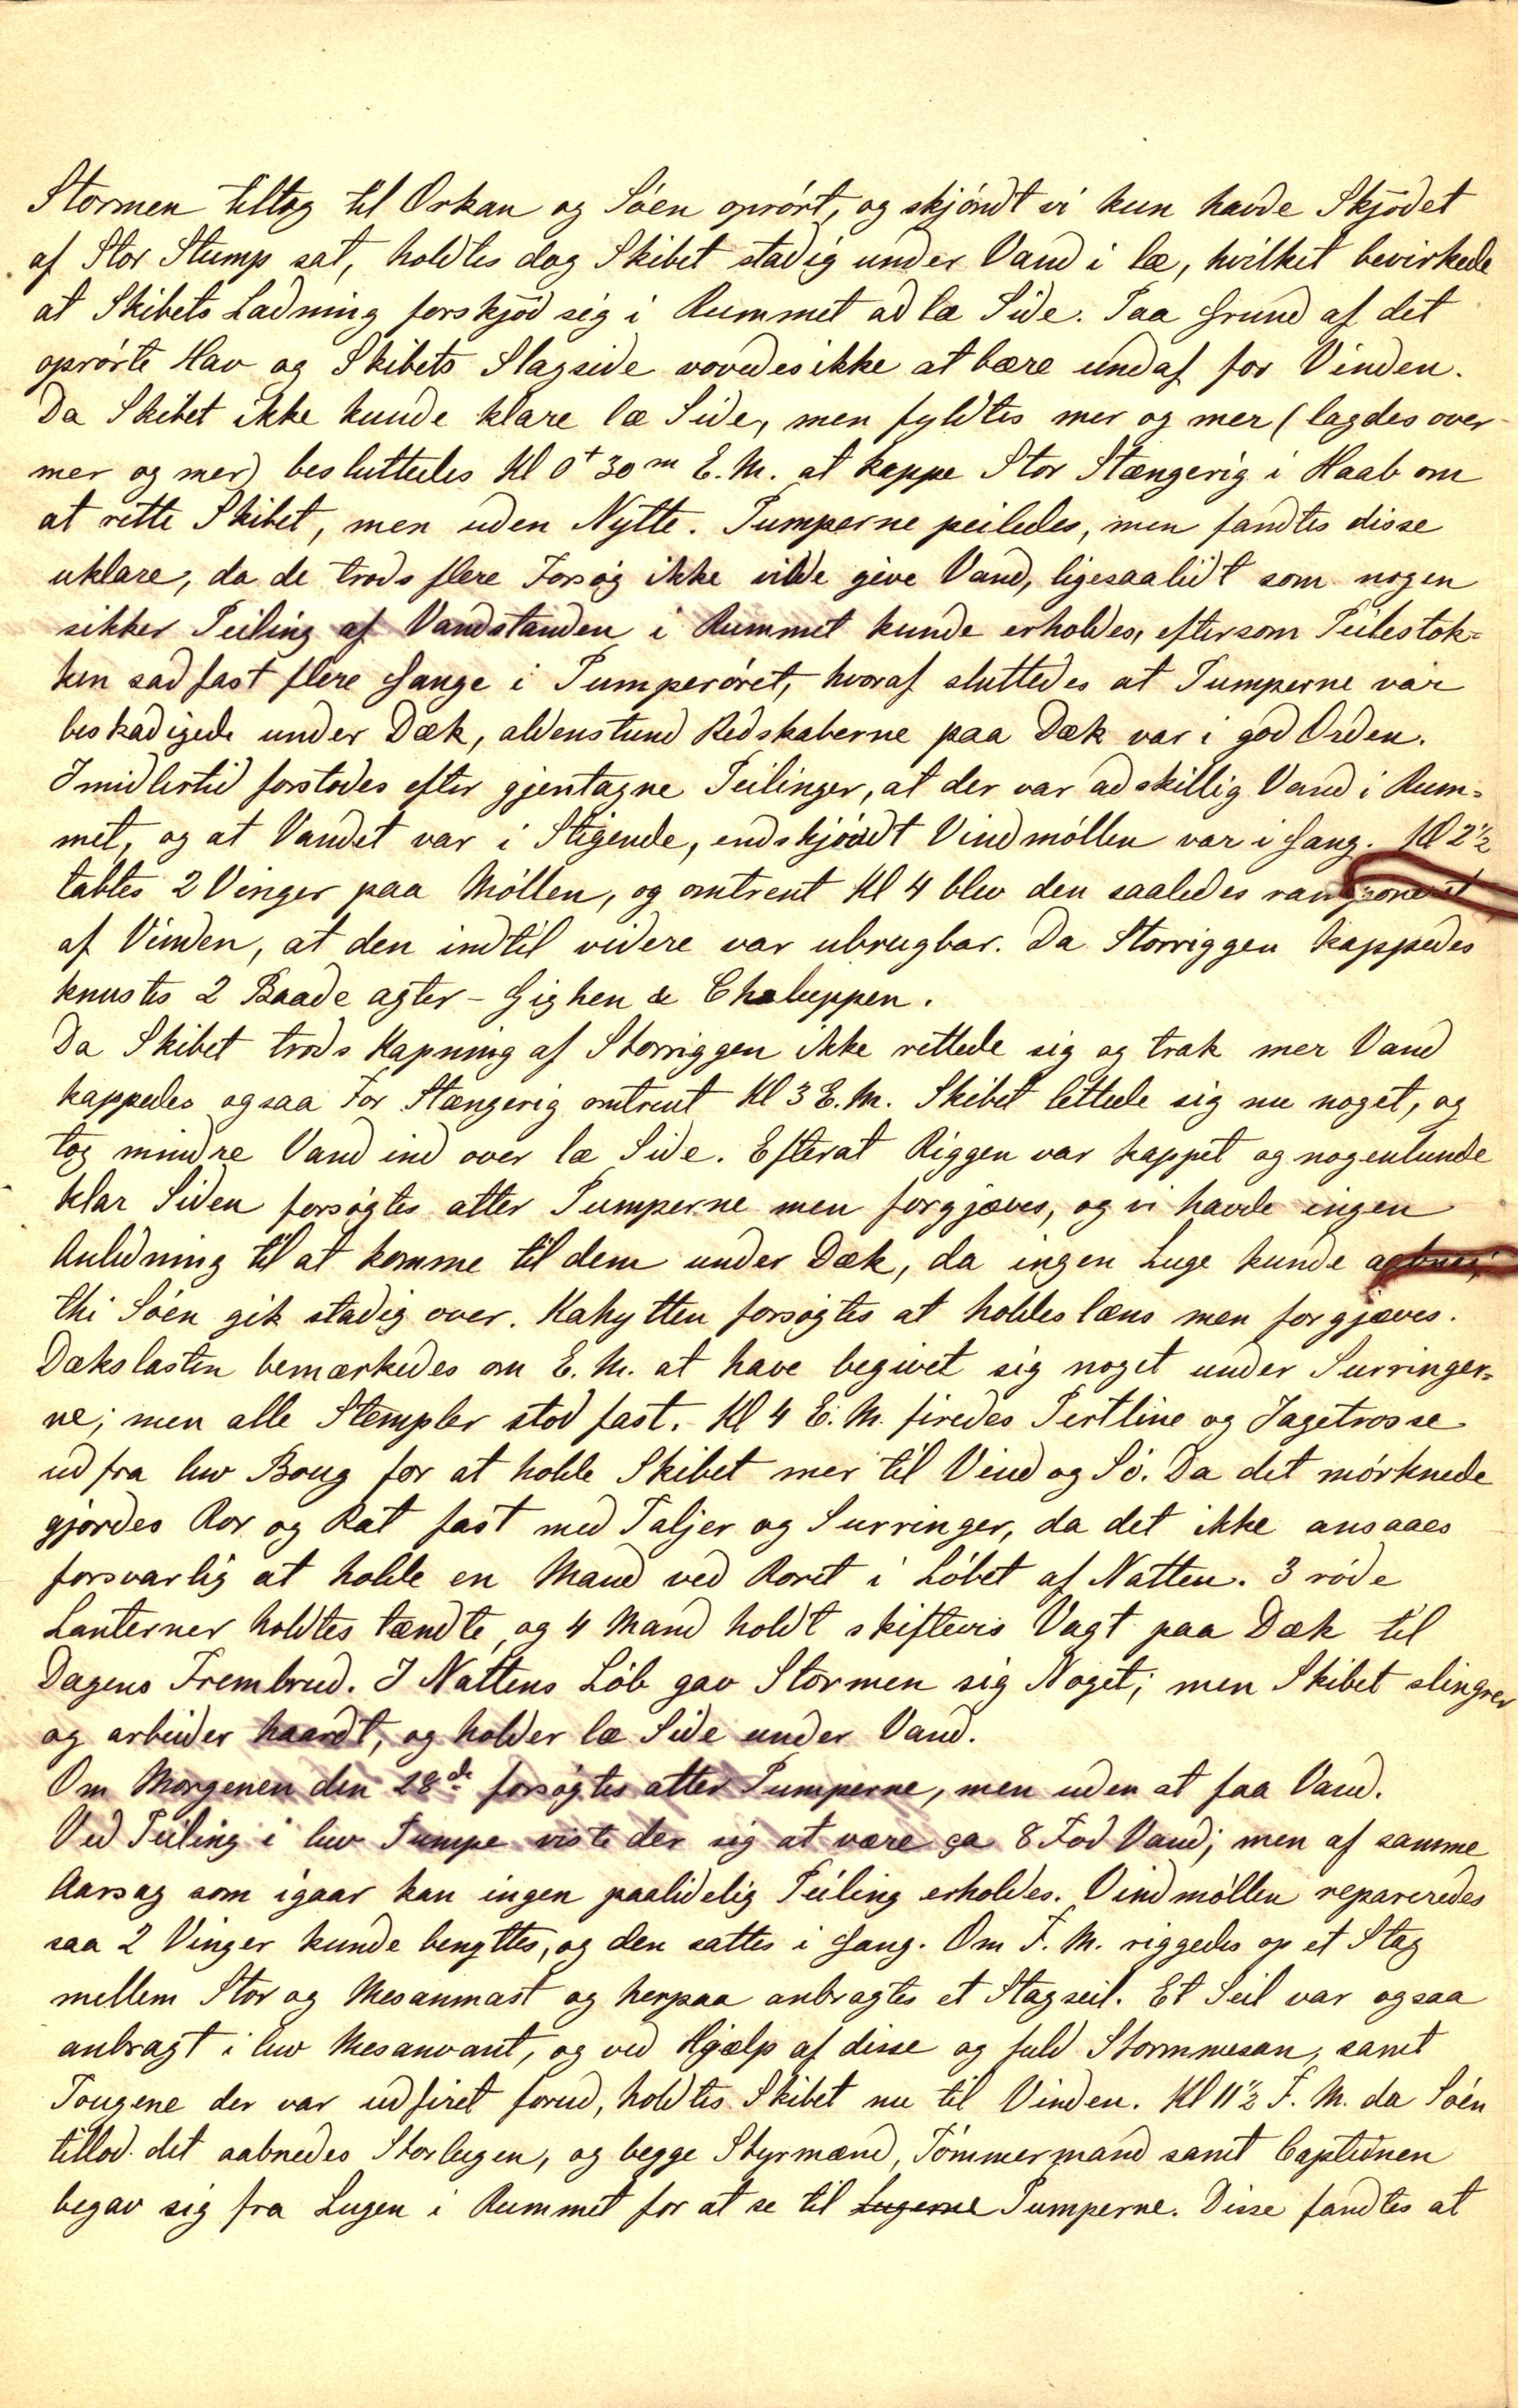 Stormen tiltog til Orkan og Söen oprört, og skjöndt vi kun havde Skjödet
af Stor Stump sat, holdtes dog Skibet stadig under Vand i læ, hvilket bevirkede
at Skibets Ladning forskjöd sig i Rummet ad læ Side. Paa Grund af det
oprörte Hav og Skibets Slagside vovedes ikke at bære undaf for Vinden.
Da Skibet ikke kunde klare læ Side, men fyldtes mer og mer (lagdes over
mer og mer) besluttedes Kl 0t 30m E. M. at kappe Stor Stængerig i Haab om
at rette Skibet, men uden Nytte. Pumperne peiledes, men fandtes disse
uklare, da de trods flere Forsög ikke vilde give Vand, ligesaalidt som nogen
sikker Peiling af Vandstanden i Rummet kunde erholdes, eftersom Peilestok=
ken sad fast flere Gange i Pumperöret, hvoraf sluttedes at Pumperne var
beskadigede under Dæk, aldenstund Redskaberne paa Dæk var i god Orden.
Imidlertid forstodes efter gjentagne Peilinger, at der var adskillig Vand i Rum=
met, og at Vandet var i Stigende, endskjöndt Vindmöllen var i Gang. Kl 2½
tabtes 2 Vinger paa Möllen, og omtrent Kl 4 blev den saaledes ramponeret
af Vinden, at den indtil videre var ubrugbar. Da Storriggen kappedes
knustes 2 Baade agter - Gighen & Chaluppen.
Da Skibet trods Kapning af Storriggen ikke rettede sig og trak mer Vand
kappedes ogsaa For Stængerig omtrent Kl 3 E. M. Skibet lettede sig nu noget, og
tog mindre Vand ind over læ Side. Efterat Riggen var kappet og nogenlunde
klar Siden forsögtes atter Pumperne men forgjæves, og vi havde ingen
Anledning til at komme til dem under Dæk, da ingen Luge kunde aabnes,
thi Söen gik stadig over. Kahytten forsögtes at holdes læns men forgjæves.
Dækslasten bemærkedes om E. M. at have begivet sig noget under Surringer=
ne; men alle Stempler stod fast. Kl 4 E. M. firedes Pertline og Jagetrosse
ud fra luv Boug for at holde Skibet mer til Vind og Sö. Da det mörknede
gjordes Ror og Rat fast med Taljer og Surringer, da det ikke ansaaes
forsvarlig at holde en Mand ved Roret i Löbet af Natten. 3 röde
Lanterner holdtes tændte, og 4 Mand holdt skiftevis Vagt paa Dæk til
Dagens Frembrud. I Nattens Löb gav Stormen sig Noget; men Skibet slingrer
og arbeider haardt, og holder læ Side under Vand.
Om Morgenen den 28de forsögtes atter Pumperne, men uden at faa Vand.
Ved Peiling i luv Pumpe viste der sig at være ca 8 Fod Vand; men af samme
Aarsag som igaar kan ingen paalidelig Peiling erholdes. Vindmöllen repareredes
saa 2 Vinger kunde benyttes, og den sattes i Gang. Om F. M. riggedes op et Stag
mellem Stor og Mesanmast og herpaa anbragtes et Stagseil. Et Seil var ogsaa
anbragt i luv Mesanvant, og ved Hjælp af disse og fuld Stormmesan, samt
Tougene der var udfiret forud, holdtes Skibet nu til Vinden. Kl 11½ F. M. da Söen
tillod det aabnedes Storlugen, og begge Styrmænd, Tömmermand samt Capteinen
begav sig fra Lugen i Rummet for at se til Lugerne Pumperne. Disse fandtes at